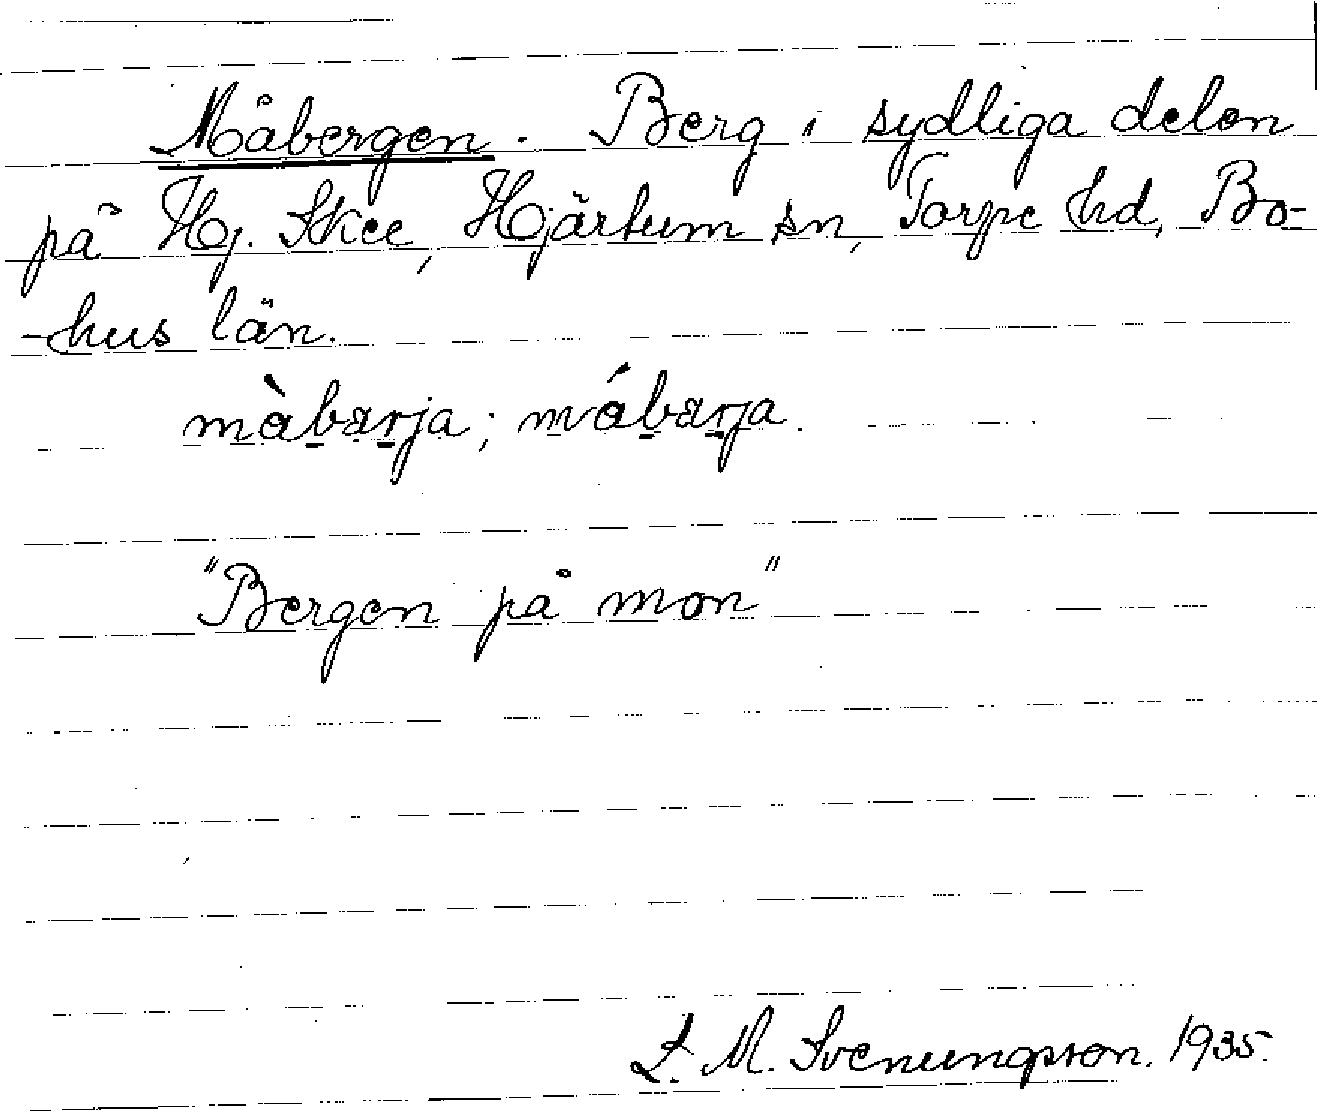 Måbergen. Berg i sydliga delen
på Hg. Skee, Hjärtum sn, Torpe hd, Bo-
-hus län.
màbarja; mábarja.
"Bergen på mon"
L. M. Svenungsson. 1935.